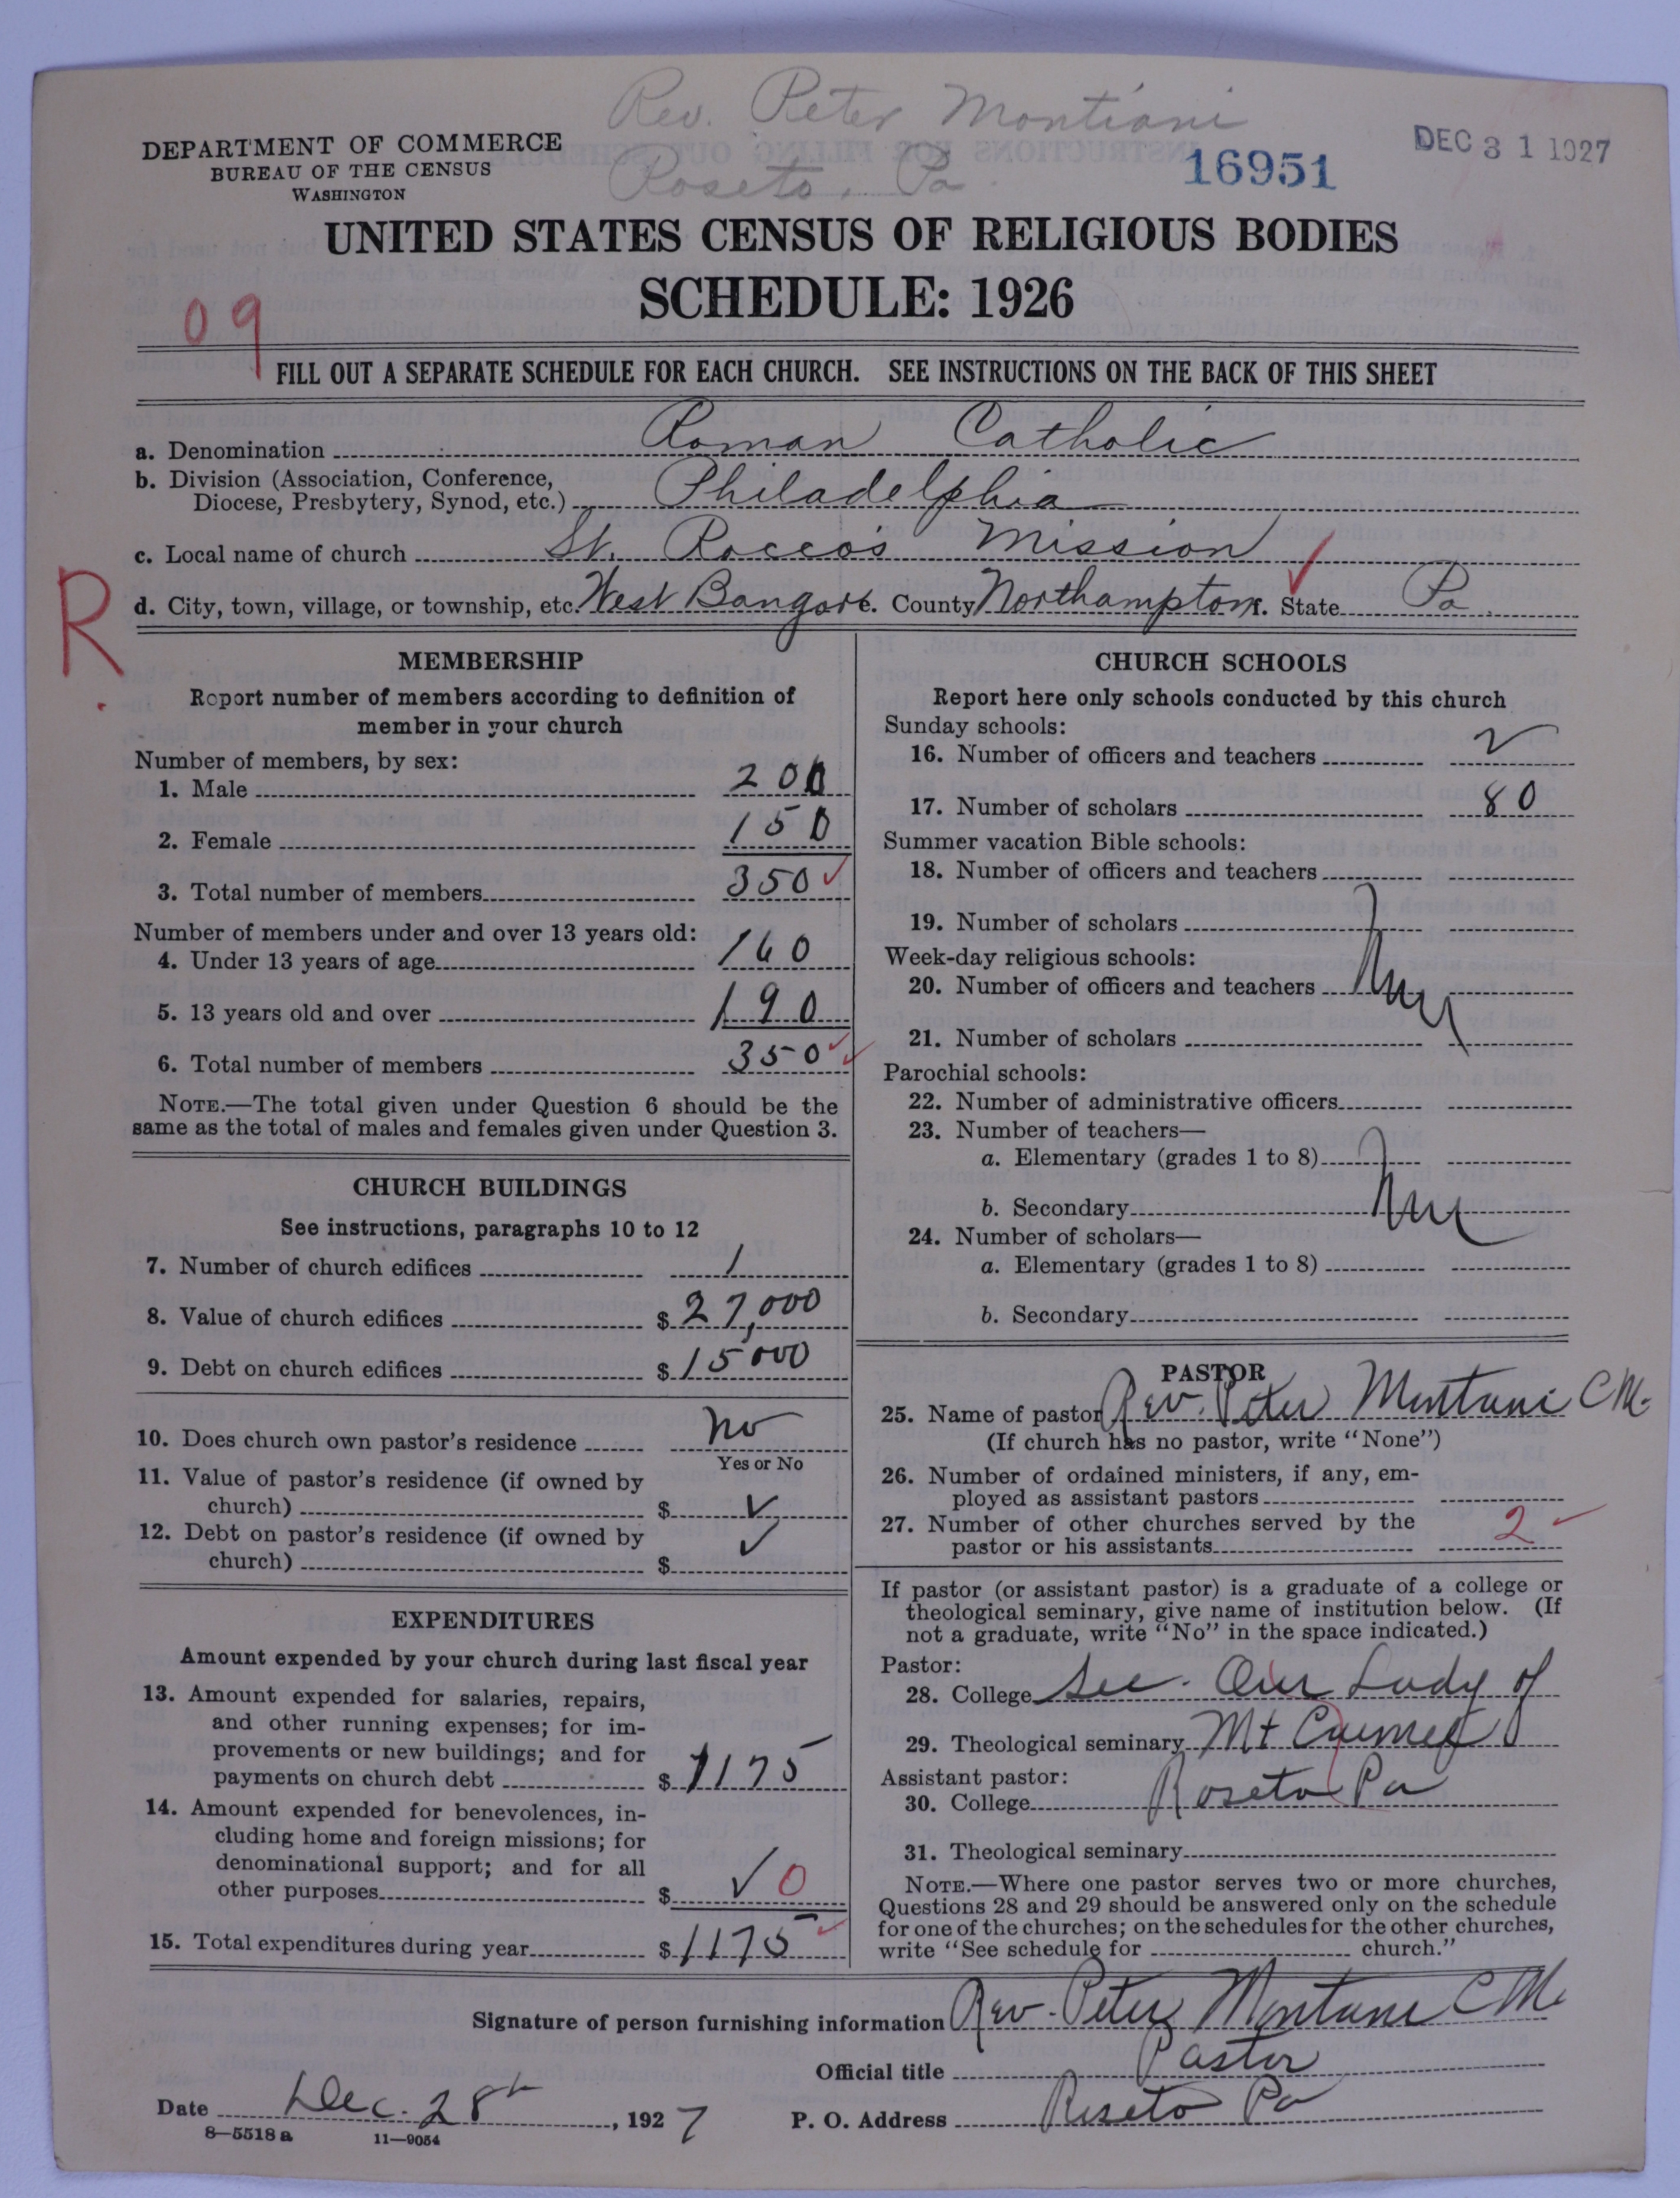 Rev. Peter Montiani
Roseto, Pa.
DEPARTMENT OF COMMERCE
BUREAU OF THE CENSUS
WASHINGTON
16951
DEC 31 1927
UNITED STATES CENSUS OF RELIGIOUS BODIES
SCHEDULE: 1926
09
FILL OUT A SEPARATE SCHEDULE FOR EACH CHURCH. SEE INSTRUCTIONS ON THE BACK OF THIS SHEET
a. Denomination Roman Catholic
b. Division (Association, Conference,
Diocese, Presbytery, Synod, etc.) Philadelphia
c. Local name of church St. Rocco's Mission
R.
d. City, town, village, or township, etc. West Bangor. County Northampton. State Pa.
MEMBERSHIP
Report number of members according to definition of
member in your church
Number of members, by sex:
1. Male 200
2. Female 150
3. Total number of members 350 ✓
Number of members under and over 13 years old:
4. Under 13 years of age 160
5. 13 years old and over 190
6. Total number of members 350 ✓
NOTE.—The total given under Question 6 should be the
same as the total of males and females given under Question 3.
CHURCH BUILDINGS
See instructions, paragraphs 10 to 12
7. Number of church edifices 1
8. Value of church edifices $ 27,000
9. Debt on church edifices $ 15000
10. Does church own pastor's residence no
Yes or No
11. Value of pastor's residence (if owned by
church) $ ✓
12. Debt on pastor's residence (if owned by
church) $ ✓
EXPENDITURES
Amount expended by your church during last fiscal year
13. Amount expended for salaries, repairs,
and other running expenses; for im-
provements or new buildings; and for
payments on church debt $ 1175
14. Amount expended for benevolences, in-
cluding home and foreign missions; for
denominational support; and for all
other purposes $ ✓ 0
15. Total expenditures during year $ 1175 ✓
CHURCH SCHOOLS
Report here only schools conducted by this church
Sunday schools:
16. Number of officers and teachers 2
17. Number of scholars 80
Summer vacation Bible schools:
18. Number of officers and teachers
19. Number of scholars
Week-day religious schools:
20. Number of officers and teachers
21. Number of scholars
Parochial schools:
22. Number of administrative officers
23. Number of teachers—
a. Elementary (grades 1 to 8)
b. Secondary
24. Number of scholars—
a. Elementary (grades 1 to 8)
b. Secondary
PASTOR
25. Name of pastor Rev. Peter Montiani C.M.
(If church has no pastor, write "None")
26. Number of ordained ministers, if any, em-
ployed as assistant pastors
27. Number of other churches served by the
pastor or his assistants 2 ✓
If pastor (or assistant pastor) is a graduate of a college or
theological seminary, give name of institution below. (If
not a graduate, write "No" in the space indicated.)
Pastor:
28. College See. Our Lady of
29. Theological seminary Mt Carmel
Assistant pastor:
30. College Roseto Pa
31. Theological seminary
NOTE.—Where one pastor serves two or more churches,
Questions 28 and 29 should be answered only on the schedule
for one of the churches; on the schedules for the other churches,
write "See schedule for church."
Signature of person furnishing information Rev. Peter Montiani C.M.
Official title Pastor
Date Dec. 28th, 1927 P. O. Address Roseto Pa
8—5518 a 11—9054